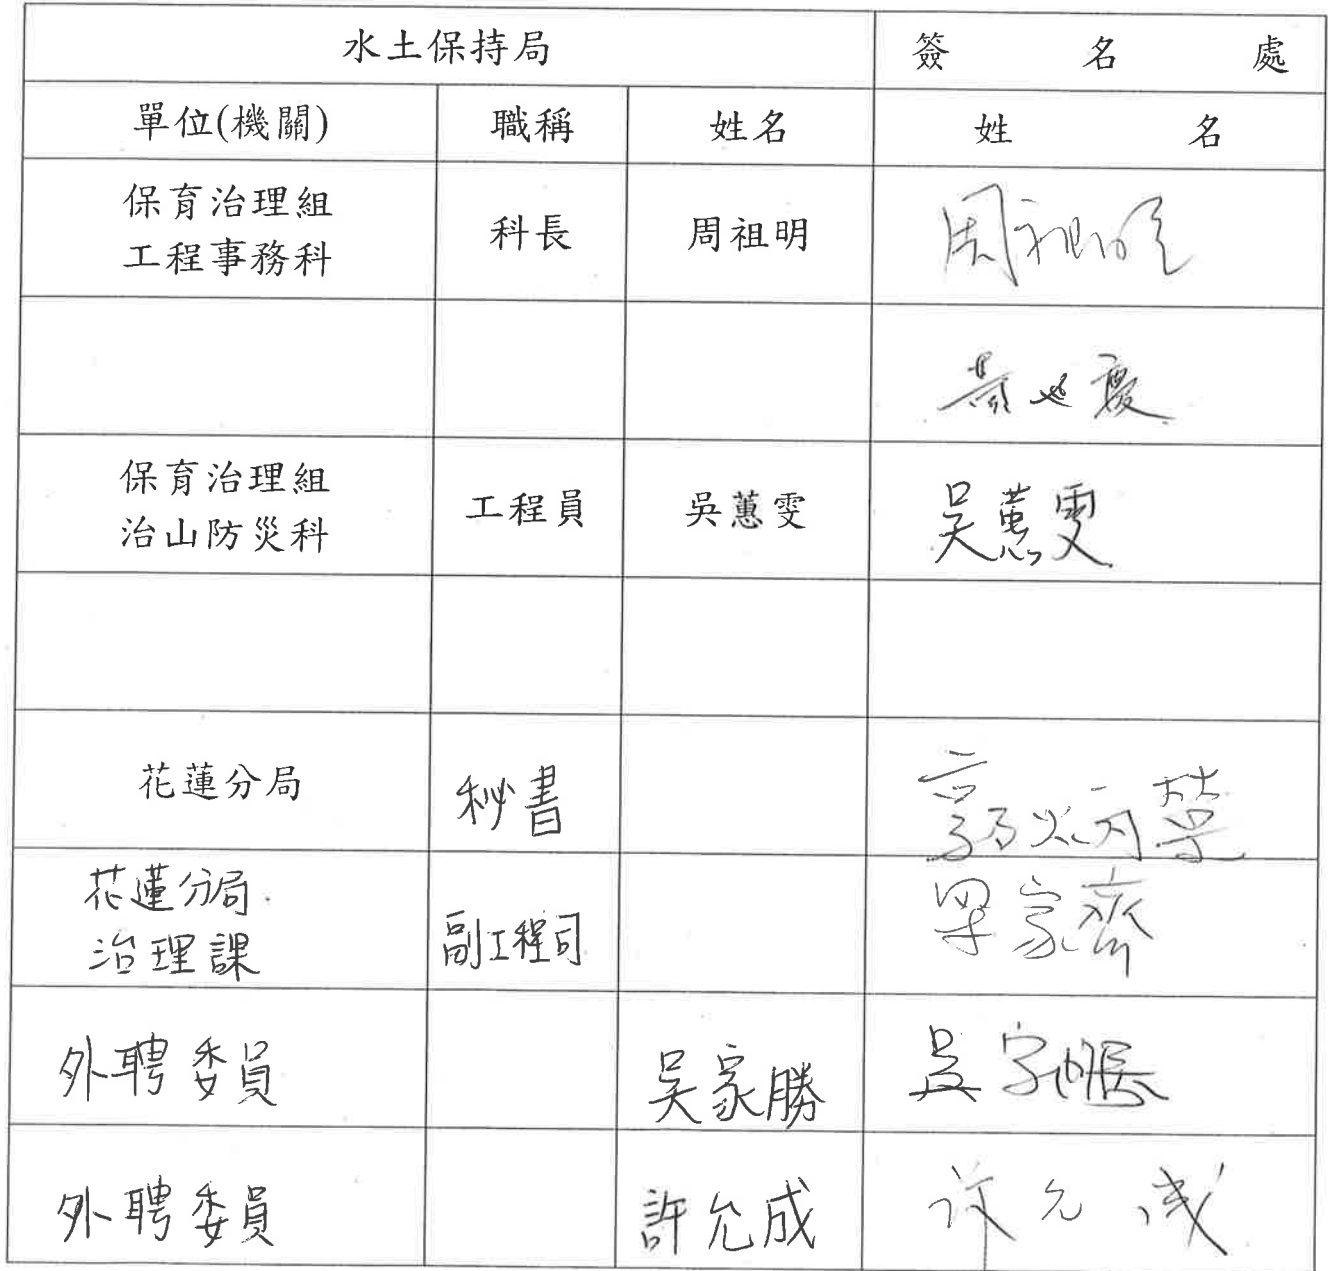 水土保持局 簽名處
單位(機關) 職稱 姓名 姓名
保育治理組
工程事務科 科長 周祖明 周祖明
保育治理組
治山防災科 工程員 吳蕙雯 吳蕙雯
花蓮分局 秘書 郭炳榮
花蓮分局.
治理課 副工程司 梁家齊
外聘委員 吳家勝
外聘委員 許允成 許允成